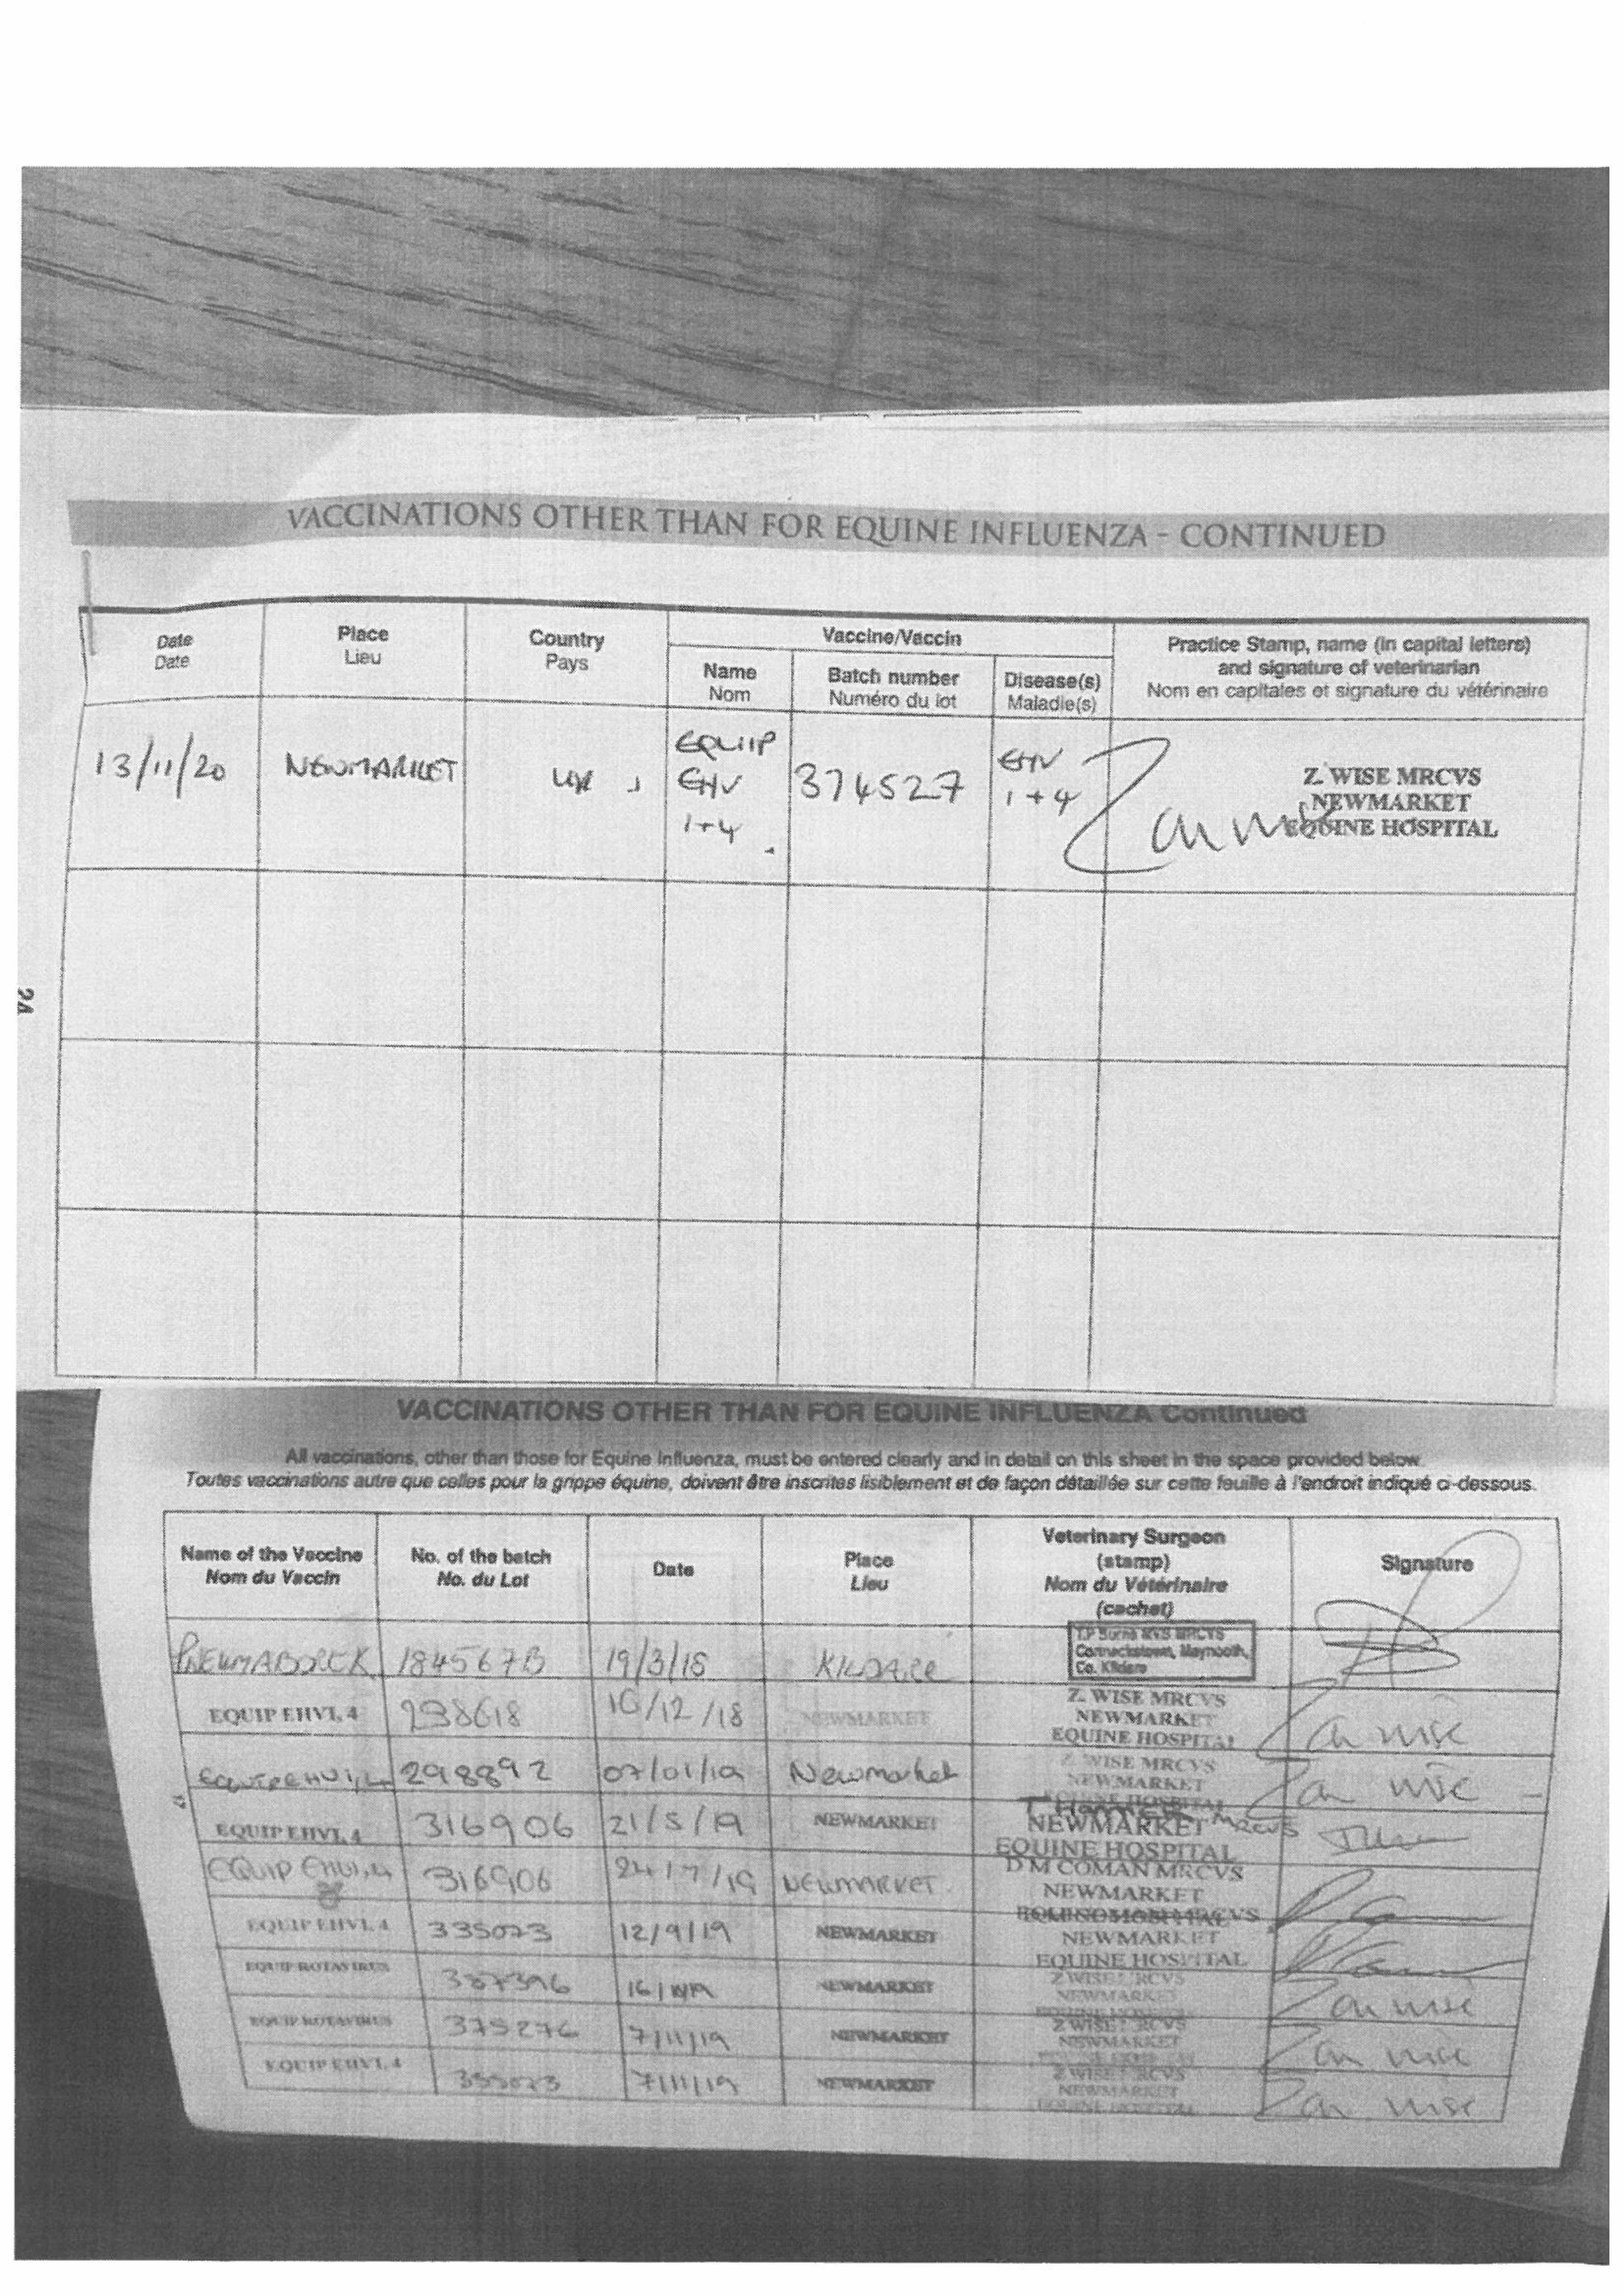 VACCINATIONS OTHER THAN FOR EQUINE INFLUENZA - CONTINUED
Date
Date
Place
Lieu
Country
Pays
Vaccine/Vaccin
Name
Nom
Batch number
Numéro du lot
Disease(s)
Maladie(s)
Practice Stamp, name (in capital letters)
and signature of veterinarian
Nom en capitales et signature du vétérinaire
13/11/20
NEWMARKET
UK
EQUIP
EHV
1+4
374527
EHV
1+4
Z. WISE MRCVS
NEWMARKET
EQUINE HOSPITAL
24
VACCINATIONS OTHER THAN FOR EQUINE INFLUENZA Continued
All vaccinations, other than those for Equine Influenza, must be entered clearly and in detail on this sheet in the space provided below.
Toutes vaccinations autre que celles pour la grippe équine, doivent être inscrites lisiblement et de façon détaillée sur cette feuille à l'endroit indiqué ci-dessous.
Name of the Vaccine
Nom du Vaccin
No. of the batch
No. du Lot
Date
Place
Lieu
Veterinary Surgeon
(stamp)
Nom du Vétérinaire
(cachet)
Signature
PNEUMABORT K 184567B 19/3/18 KILDARE
T.P Burns MVB MRCVS
Connackstown, Maynooth,
Co. Kildare
EQUIP EHV1, 4 298618 10/12/18 NEWMARKET
Z. WISE MRCVS
NEWMARKET
EQUINE HOSPITAL
Zoe Wise
EQUIP EHV1,4 298892 07/01/19 Newmarket
Z WISE MRCVS
NEWMARKET
EQUINE HOSPITAL
Zoe Wise
EQUIP EHV1, 4 316906 21/5/19 NEWMARKET
MRCVS
NEWMARKET
EQUINE HOSPITAL
EQUIP EHV1,4 316906 24/7/19 NEWMARKET
D M COMAN MRCVS
NEWMARKET
EQUIP EHV1, 4 335073 12/9/19 NEWMARKET
NEWMARKET
EQUINE HOSPITAL
EQUIP ROTAVIRUS 16/10/19 NEWMARKET
Z WISE MRCVS
NEWMARKET
EQUINE HOSPITAL
Zoe Wise
EQUIP ROTAVIRUS 375276 7/11/19 NEWMARKET
Z WISE MRCVS
NEWMARKET
EQUINE HOSPITAL
Zoe Wise
EQUIP EHV1, 4 7/11/19 NEWMARKET
Z WISE MRCVS
NEWMARKET
EQUINE HOSPITAL
Zoe Wise